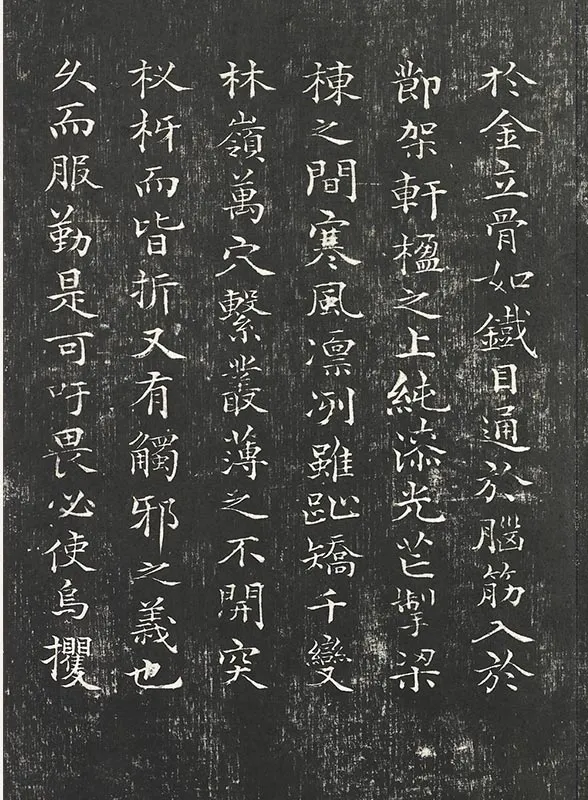 於金立骨如鐵目通於腦筋入於
節架軒楹之上純漆光芒掣梁
棟之間寒風凛冽雖趾矯千變
林嶺萬穴繫叢薄之不開突
杈枒而皆折又有觸邪之義也
久而服勤是可吁畏必使烏攫